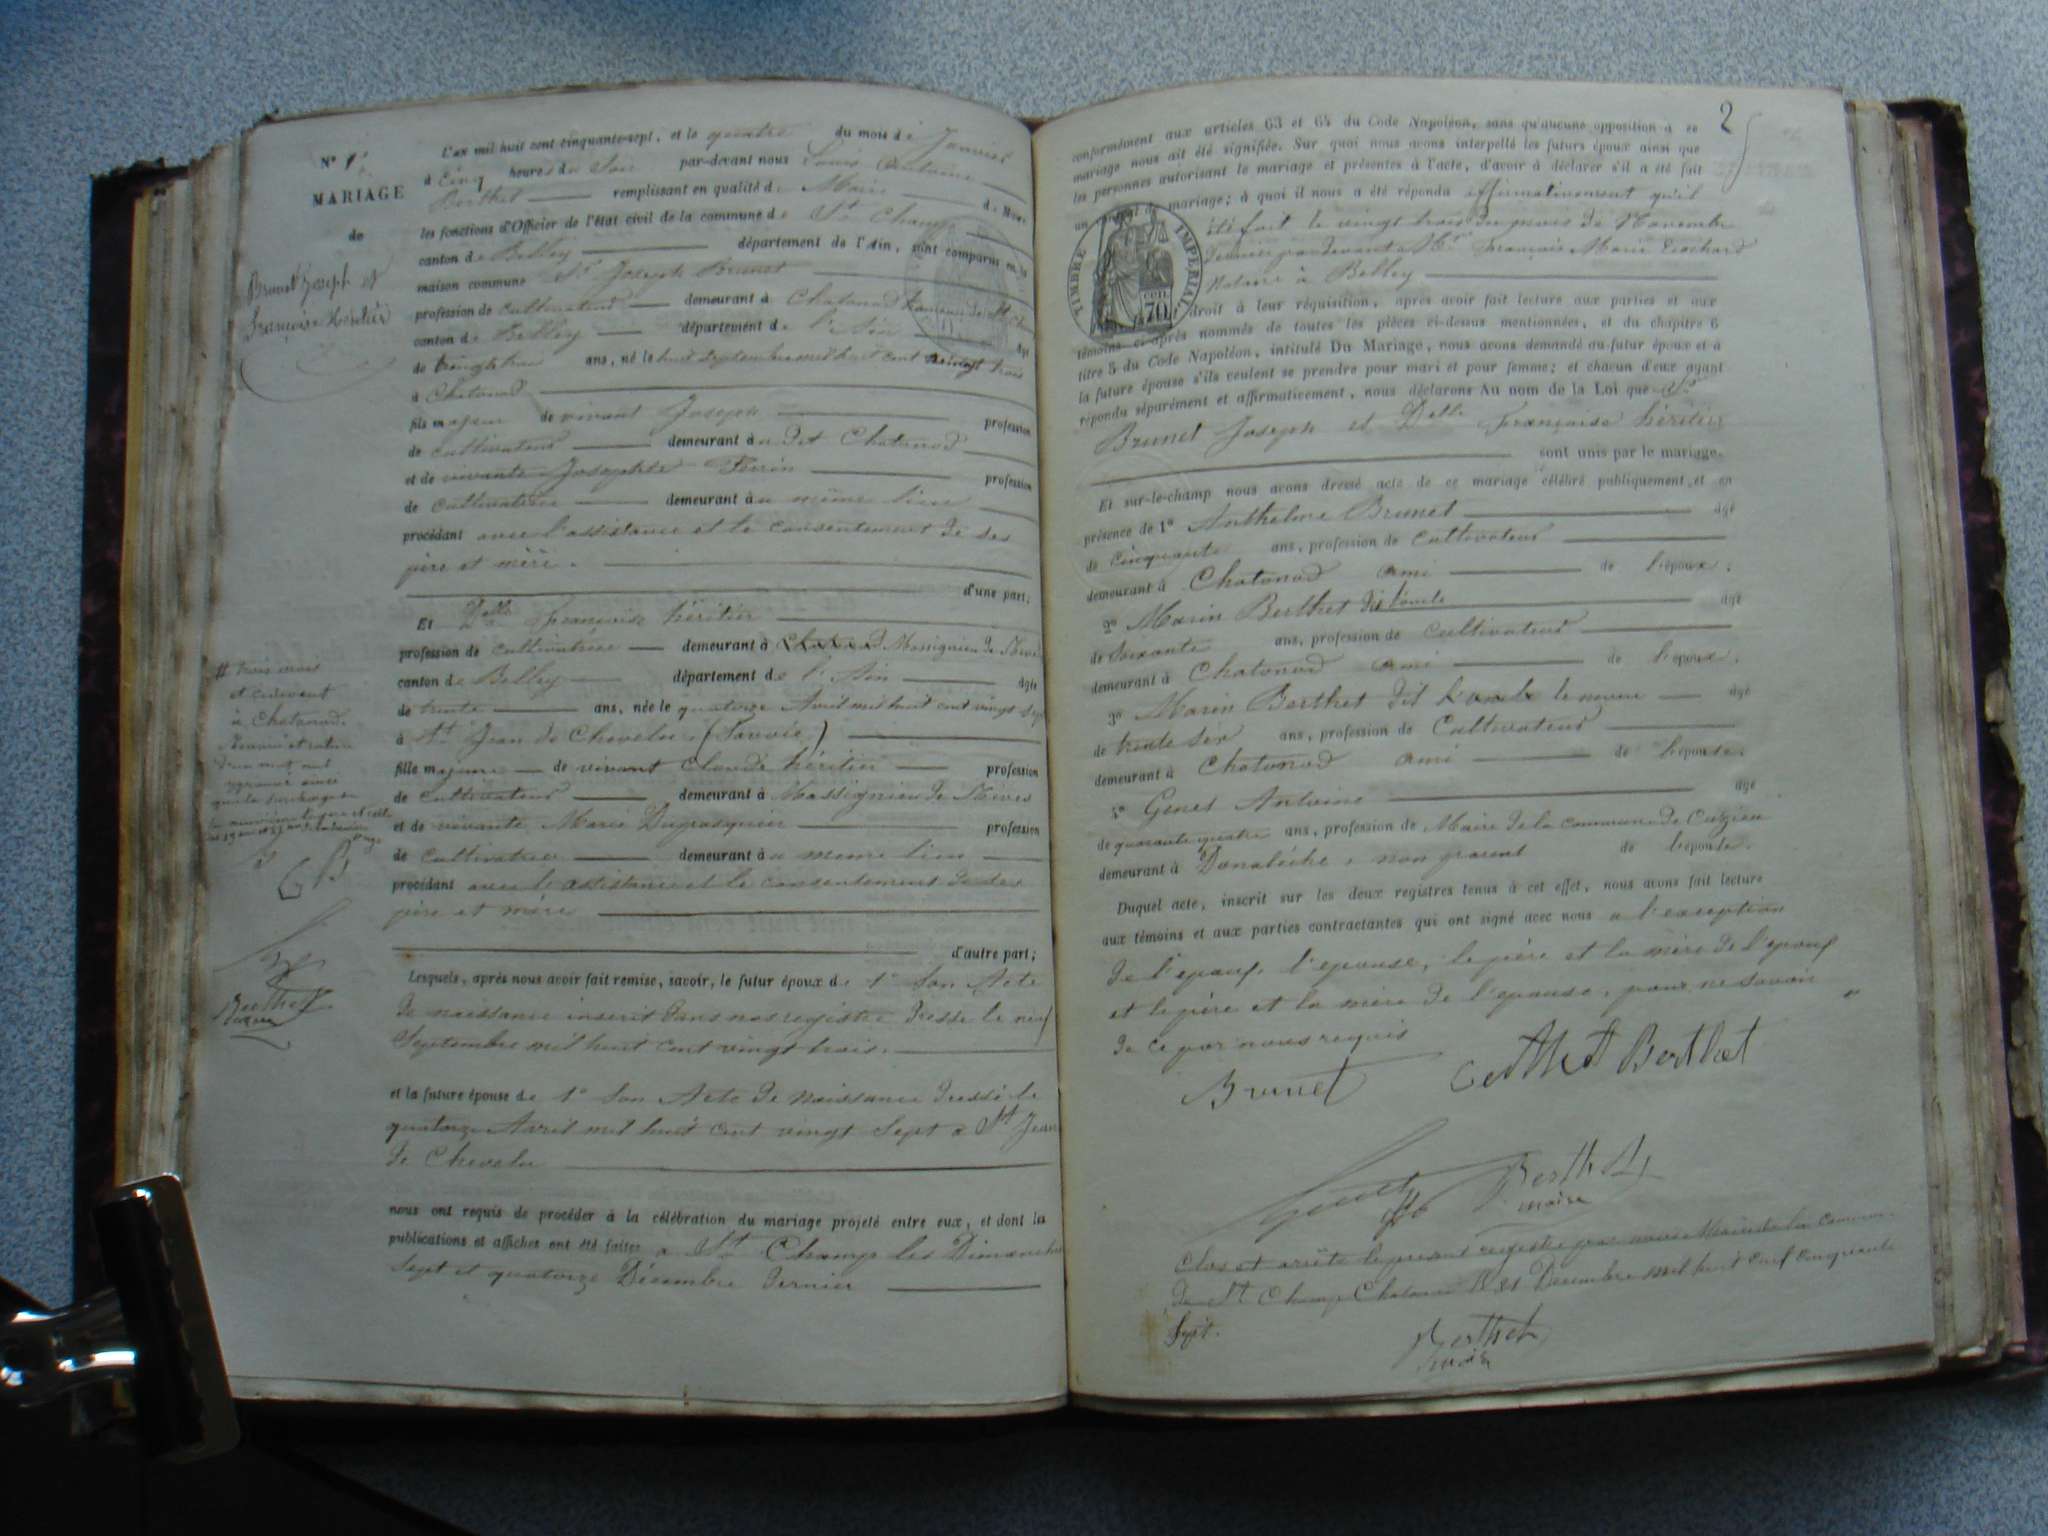 N° 1
MARIAGE
de
Brunet Joseph et
Françoise Héritier
L'an mil huit cent cinquante-sept, et le quatre du mois de Janvier
à Cinq heures du Soir par-devant nous Louis Antoine
Berthet remplissant en qualité de Maire
les fonctions d'Officier de l'état civil de la commune de St Champ
canton de Belley département de l'Ain, sont comparus en la
maison commune Sr Joseph Brunet
profession de cultivateur demeurant à Chatonod
canton de Belley département de l'Ain âgé
de ans, né le huit Septembre mil huit cent vingt trois
à Chatonod
fils majeur de vivant Joseph profession
de cultivateur demeurant à Chatonod
et de vivante Josephte Perrin profession
de cultivatrice demeurant au même lieu
procédant avec l'assistance et le consentement de ses
père et mère.
d'une part;
Et Delle Françoise héritier
profession de cultivatrice demeurant à Massignieu de Rives
canton de Belley département de l'Ain âgée
de trente ans, née le quatorze Avril mil huit cent vingt Sept
à St Jean de Chevelu (Savoie)
fille majeure de vivant Claude héritier profession
de cultivateur demeurant à Massignieu de Rives
et de vivante Marie profession
de cultivatrice demeurant au même lieu
procédant avec l'assistance et le consentement de ses
père et mère
d'autre part;
# trois mois
à Chatonod.
Berthet
maire
Lesquels, après nous avoir fait remise, savoir, le futur époux de 1° Son Acte
de naissance inscrit dans nos registres dressé le neuf
Septembre mil huit cent vingt trois.
et la future épouse de 1° Son Acte de Naissance dressé le
quatorze Avril mil huit cent vingt Sept à St Jean
de Chevelu
nous ont requis de procéder à la célébration du mariage projeté entre eux, et dont les
publications et affiches ont été faites à St Champ les Dimanches
Sept et quatorze Décembre dernier
2
conformément aux articles 63 et 64 du Code Napoléon, sans qu'aucune opposition à ce
mariage nous ait été signifiée. Sur quoi nous avons interpellé les futurs époux ainsi que
les personnes autorisant le mariage et présentes à l'acte, d'avoir à déclarer s'il a été fait
un de mariage; à quoi il nous a été répondu affirmativement qu'il
été fait le vingt trois du mois de Novembre
dernier par devant Me François Marie
Notaire à Belley
TIMBRE IMPÉRIAL
70 CEN.
droit à leur réquisition, après avoir fait lecture aux parties et aux
témoins ci-après nommés de toutes les pièces ci-dessus mentionnées, et du chapitre 6
titre 5 du Code Napoléon, intitulé Du Mariage, nous avons demandé au futur époux et à
la future épouse s'ils veulent se prendre pour mari et pour femme; et chacun d'eux ayant
répondu séparément et affirmativement, nous déclarons Au nom de la Loi que Sr
Brunet Joseph et Delle Françoise héritier
sont unis par le mariage.
Et sur-le-champ nous avons dressé acte de ce mariage célébré publiquement et en
présence de 1° Anthelme Brunet âgé
de cinquante ans, profession de cultivateur
demeurant à Chatonod ami de l'époux.
2° Marin Berthet dit âgé
de soixante ans, profession de cultivateur
demeurant à Chatonod ami de l'époux.
3° Marin Berthet dit le neveu âgé
de trente Six ans, profession de Cultivateur
demeurant à Chatonod ami de l'épouse.
4° Genet Antoine âgé
de quarante quatre ans, profession de Maire de la commune de Cuzieu
demeurant à non parent de l'épouse.
Duquel acte, inscrit sur les deux registres tenus à cet effet, nous avons fait lecture
aux témoins et aux parties contractantes qui ont signé avec nous à l'exception
de l'époux, l'épouse, le père et la mère de l'époux
et le père et la mère de l'épouse, pour ne savoir
de ce par nous requis
Brunet Berthet Berthet
Genet Berthet
maire
Clos et arrêté le présent registre par nous Maire de la commune
de St Champ Chatonod le 31 Décembre mil huit cent cinquante
Sept.
Berthet
maire